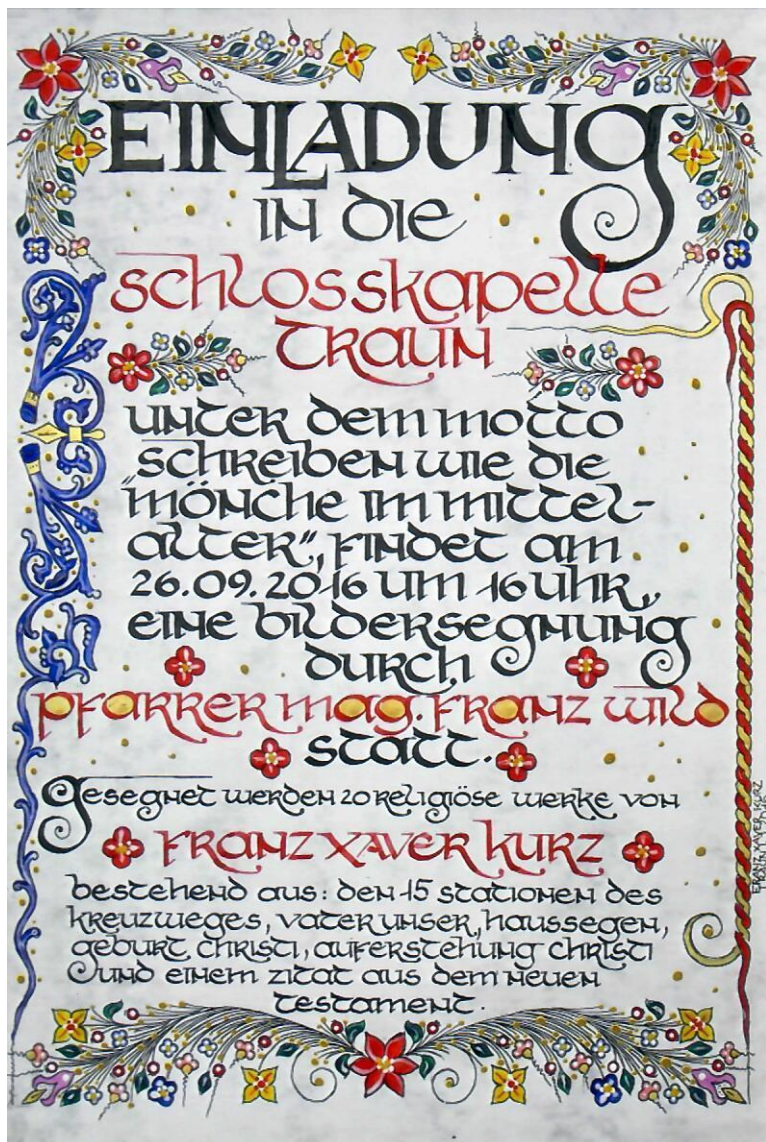 EINLADUNG
IN die
schlosskapelle
TRAUN
UNTER dem motto
schreiben wie die
"mönche im mittel-
alter", findet am
26.09.2016 um 16 uhr,,
eine bildersegnung
durch
pfarrer mag. Franz wild
statt.
Gesegnet werden 20 religiöse werke von
FRANZ XAVER KURZ
bestehend aus: den 15 stationen des
kreuzweges, vater unser, haussegen,
geburt christi, auferstehung christi
und einem zitat aus dem neuen
testament.
FRANZ XAVER KURZ